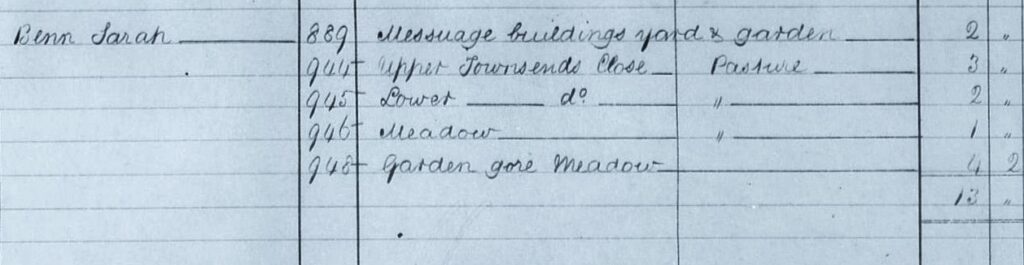 Benn Sarah 889 Messuage buildings yard & garden 2 "
944 Upper Townsends Close Pasture 3 "
945 Lower do " 2 "
946 Meadow " 1 "
948 Garden gore Meadow 4 2
13 "